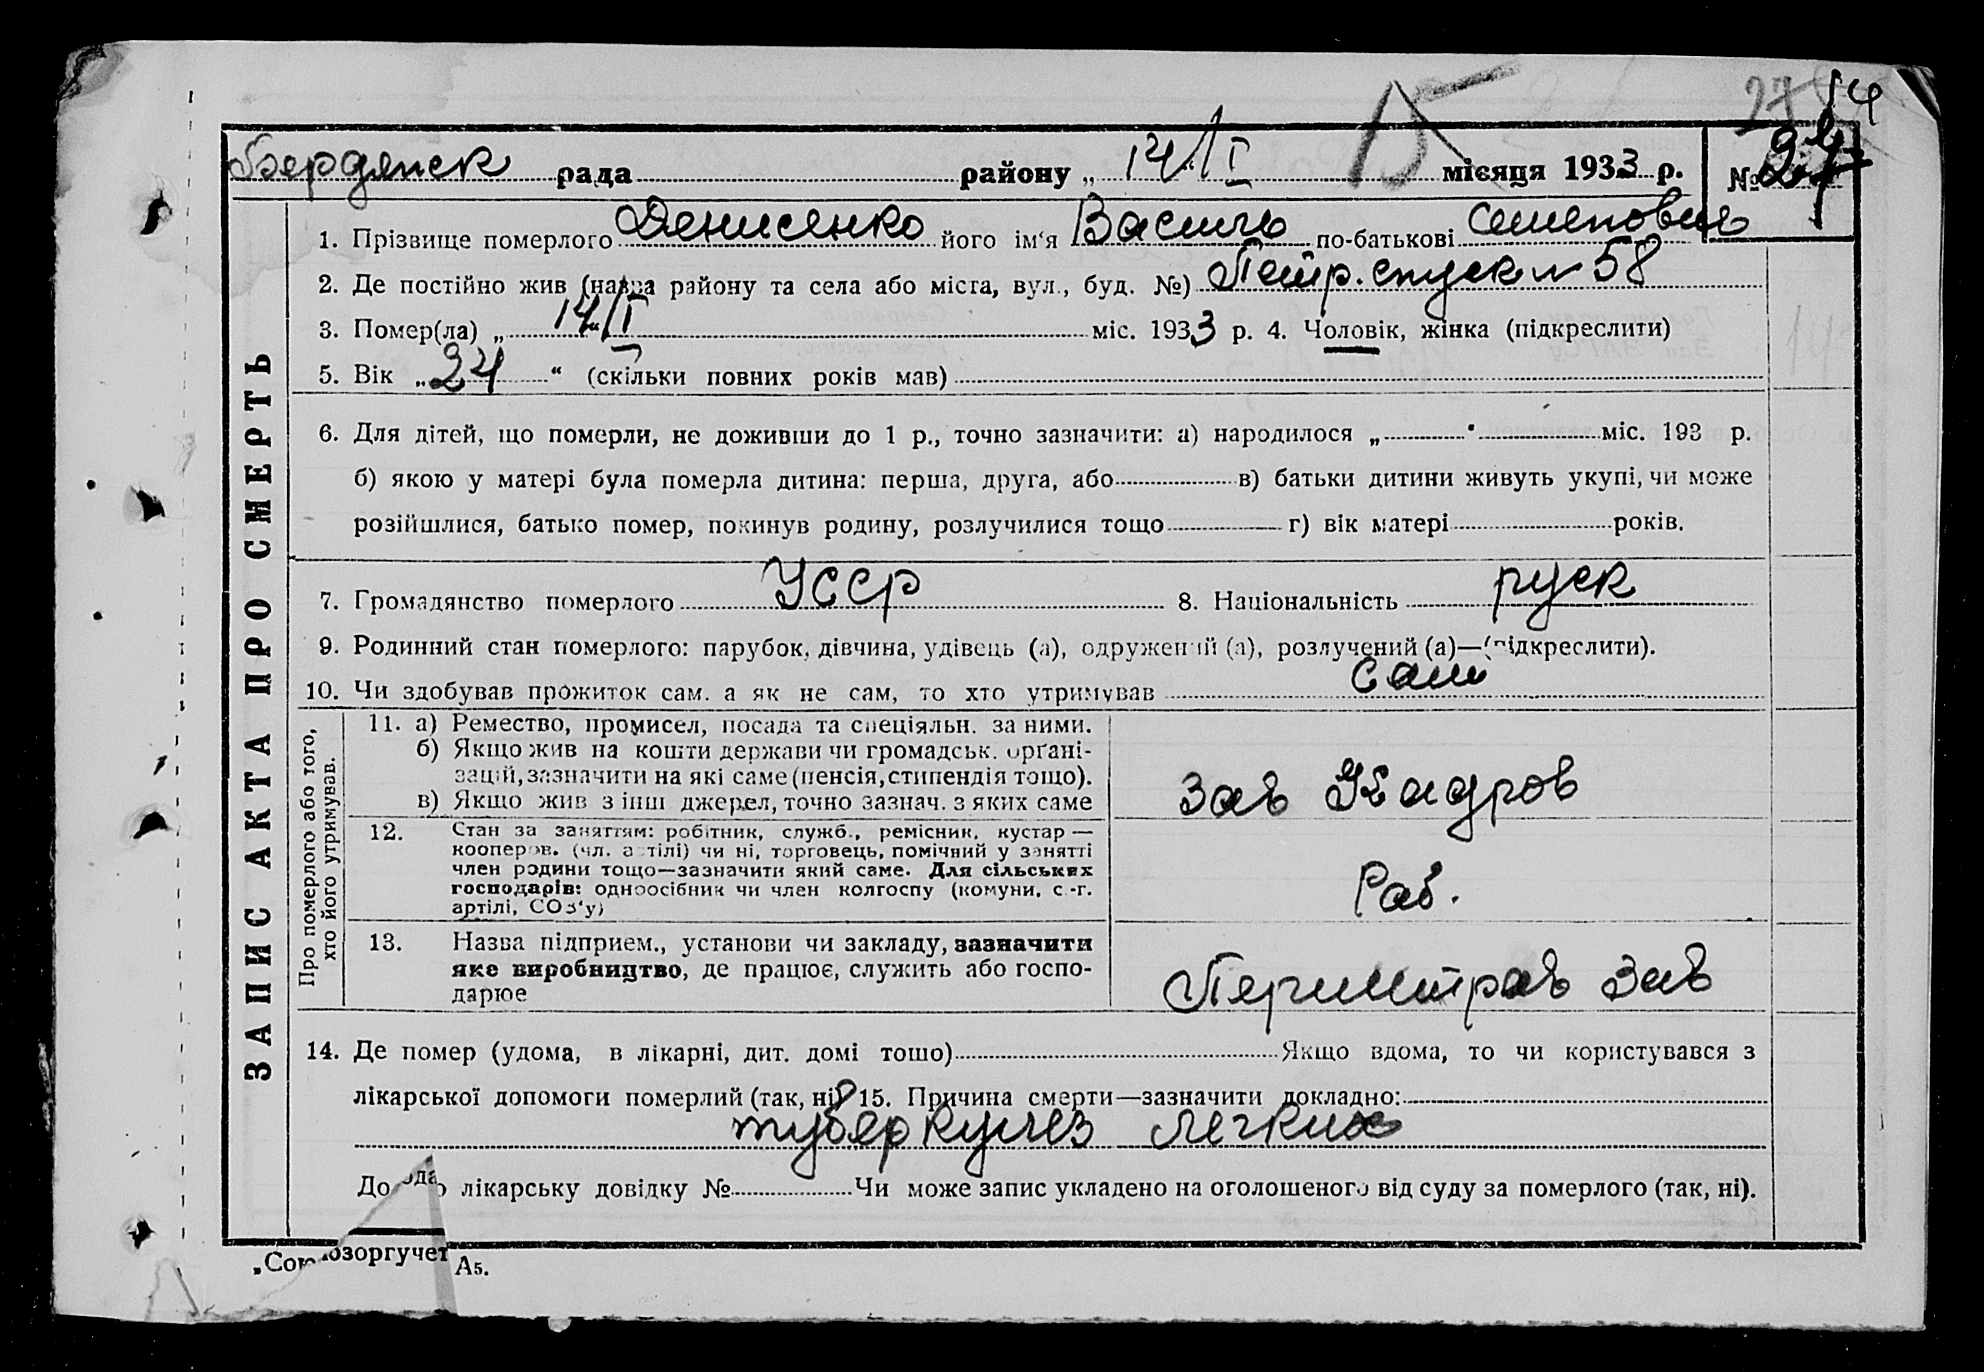 27 14
15
Бердянск рада района „ 14/I місяця 1933 р. № 27
1. Прізвище померлого Денисенко його ім‘я Василь по-батькові Семенович
2. Де постійно жив (назва району та села або міста, вул., буд. №) Петр. спуск № 58
3. Помер(ла) „ 14/I міс. 1933 р. 4. Чоловік, жінка (підкреслити)
5. Вік „ 24 “ (скільки повних років мав)
6. Для дітей, що померли, не доживши до 1 р., точно зазначити: а) народилося „ “ міс. 193 р.
б) якою у матері була померла дитина: перша, друга, або в) батьки дитини живуть укупі, чи може
розійшлися, батько помер, покинув родину, розлучилися тощо г) вік матері років.
7. Громадянство померлого УССР 8. Національність руск
9. Родинний стан померлого: парубок, дівчина, удівець (а), одружений (а), розлучений (а)—(підкреслити).
10. Чи здобував прожиток сам. а як не сам, то хто утримував сам
ЗАПИС АКТА ПРО СМЕРТЬ
Про померлого або того,
хто його утримував.
11. а) Ремество, промисел, посада та спеціяльн. за ними.
б) Якщо жив на кошти держави чи громадськ. орґані-
зацій, зазначити на які саме (пенсія, стипендія тощо).
в) Якщо жив з інш джерел, точно зазнач. з яких саме
Зав Кадров
12. Стан за заняттям: робітник, служб., ремісник, кустар —
кооперов. (чл. артілі) чи ні, торговець, помічний у занятті
член родини тощо—зазначити який саме. Для сільських
господарів: одноосібник чи член колгоспу (комуни, с.-г.
артілі, СОЗ‘у)
Раб.
13. Назва підприєм., установи чи закладу, зазначити
яке виробництво, де працює, служить або госпо-
дарює
Зав
14. Де помер (удома, в лікарні, дит. домі тощо) Якщо вдома, то чи користувався з
лікарської допомоги померлий (так, ні)? 15. Причина смерти—зазначити докладно:
туберкулез легких
До лікарську довідку № Чи може запис укладено на оголошеного від суду за померлого (так, ні).
„Союзоргучет А5.